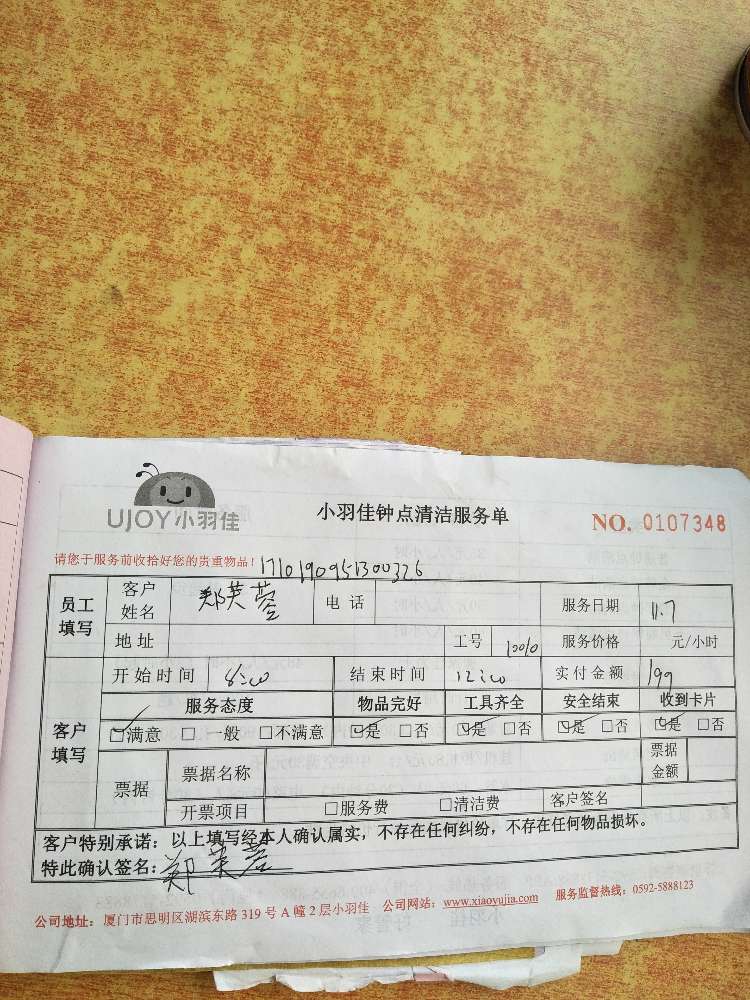 UJOY小羽佳
小羽佳钟点清洁服务单
NO. 0107348
请您于服务前收拾好您的贵重物品！
1710190951300326
员工填写 客户姓名 郑芙蓉 电话 服务日期 11.7
地址 工号 服务价格 元/小时
客户填写 开始时间 8:00 结束时间 12:00 实付金额 199
服务态度 物品完好 工具齐全 安全结束 收到卡片
☑满意 □一般 □不满意 ☑是 □否 ☑是 □否 ☑是 □否 ☑是 □否
票据 票据名称 票据金额
开票项目 □服务费 □清洁费 客户签名
客户特别承诺：以上填写经本人确认属实，不存在任何纠纷，不存在任何物品损坏。
特此确认签名：郑芙蓉
公司地址：厦门市思明区湖滨东路 319 号 A 幢 2 层小羽佳 公司网站：www.xiaoyujia.com 服务监督热线：0592-5888123